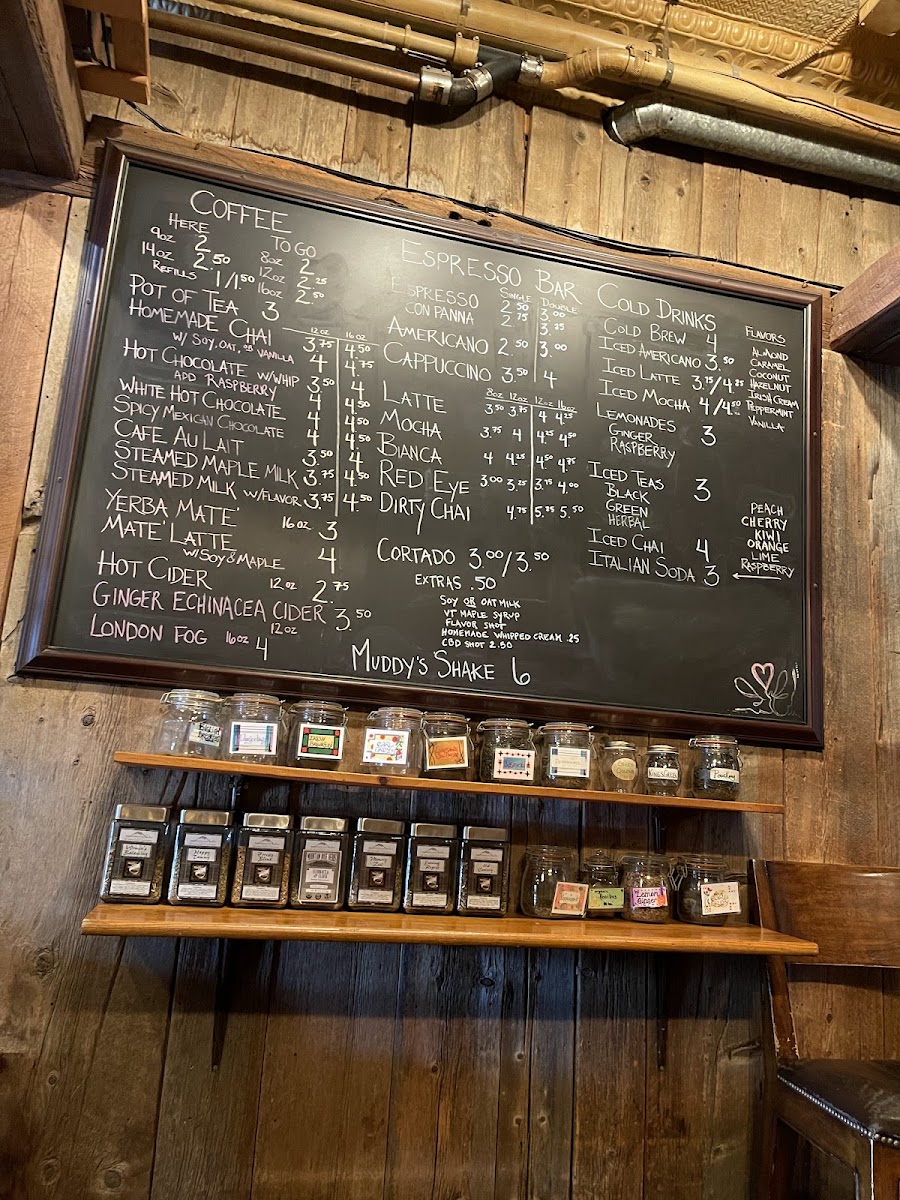 COFFEE
HERE
9oz 2.
14oz 2.50
REFILLS 1/1.50
TO GO
8oz 2
12oz 2.25
16oz 2.50
POT OF TEA 3
12oz 16oz
HOMEMADE CHAI 3.75 4.50
W/ SOY, OAT, OR VANILLA 4 4.75
HOT CHOCOLATE W/WHIP 3.50 4
ADD RASPBERRY 4 4.50
WHITE HOT CHOCOLATE 4 4.50
SPICY MEXICAN CHOCOLATE 4 4.50
CAFE AU LAIT 3.50 4
STEAMED MAPLE MILK 3.75 4.50
STEAMED MILK W/FLAVOR 3.75 4.50
YERBA MATE' 16oz 3
MATE' LATTE
W/SOY & MAPLE 4
HOT CIDER 12oz 2.75
GINGER ECHINACEA CIDER 3.50
12oz
LONDON FOG 16oz 4
ESPRESSO BAR
SINGLE DOUBLE
ESPRESSO 2.50 3.00
CON PANNA 2.75 3.25
AMERICANO 2.50 3.00
CAPPUCCINO 3.50 4
8oz 12oz 12oz 16oz
LATTE 3.50 3.75 4 4.25
MOCHA 3.75 4 4.25 4.50
BIANCA 4 4.25 4.50 4.75
RED EYE 3.00 3.25 3.75 4.00
DIRTY CHAI 4.75 5.25 5.50
CORTADO 3.00/3.50
EXTRAS .50
SOY OR OAT MILK
VT MAPLE SYRUP
FLAVOR SHOT
HOMEMADE WHIPPED CREAM .25
CBD SHOT 2.50
MUDDY'S SHAKE 6
COLD DRINKS
COLD BREW 4
ICED AMERICANO 3.50
ICED LATTE 3.75/4.25
ICED MOCHA 4/4.50
LEMONADES 3
GINGER
RASPBERRY
ICED TEAS 3
BLACK
GREEN
HERBAL
ICED CHAI 4
ITALIAN SODA 3
FLAVORS
ALMOND
CARAMEL
COCONUT
HAZELNUT
IRISH CREAM
PEPPERMINT
VANILLA
PEACH
CHERRY
KIWI
ORANGE
LIME
RASPBERRY
Lemon
Ginger